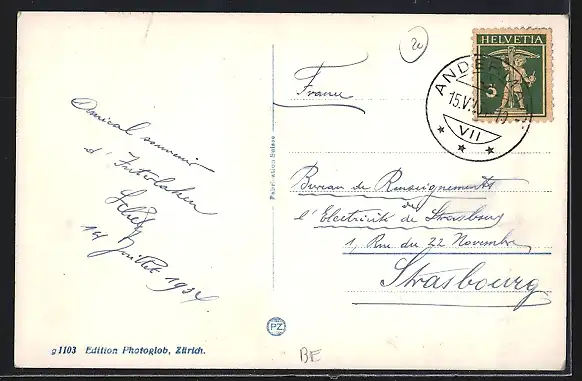 2c
HELVETIA
ANDER
15.V
VII
France
Amical souvenir
d'Interlaken
14 Juillet 1934
Fabrication Suisse
Bureau de Renseignements
de
l'Electricité de Strasbourg
1, Rue du 22 Novembre
Strasbourg
PZ
BE
g1103 Edition Photoglob, Zürich.